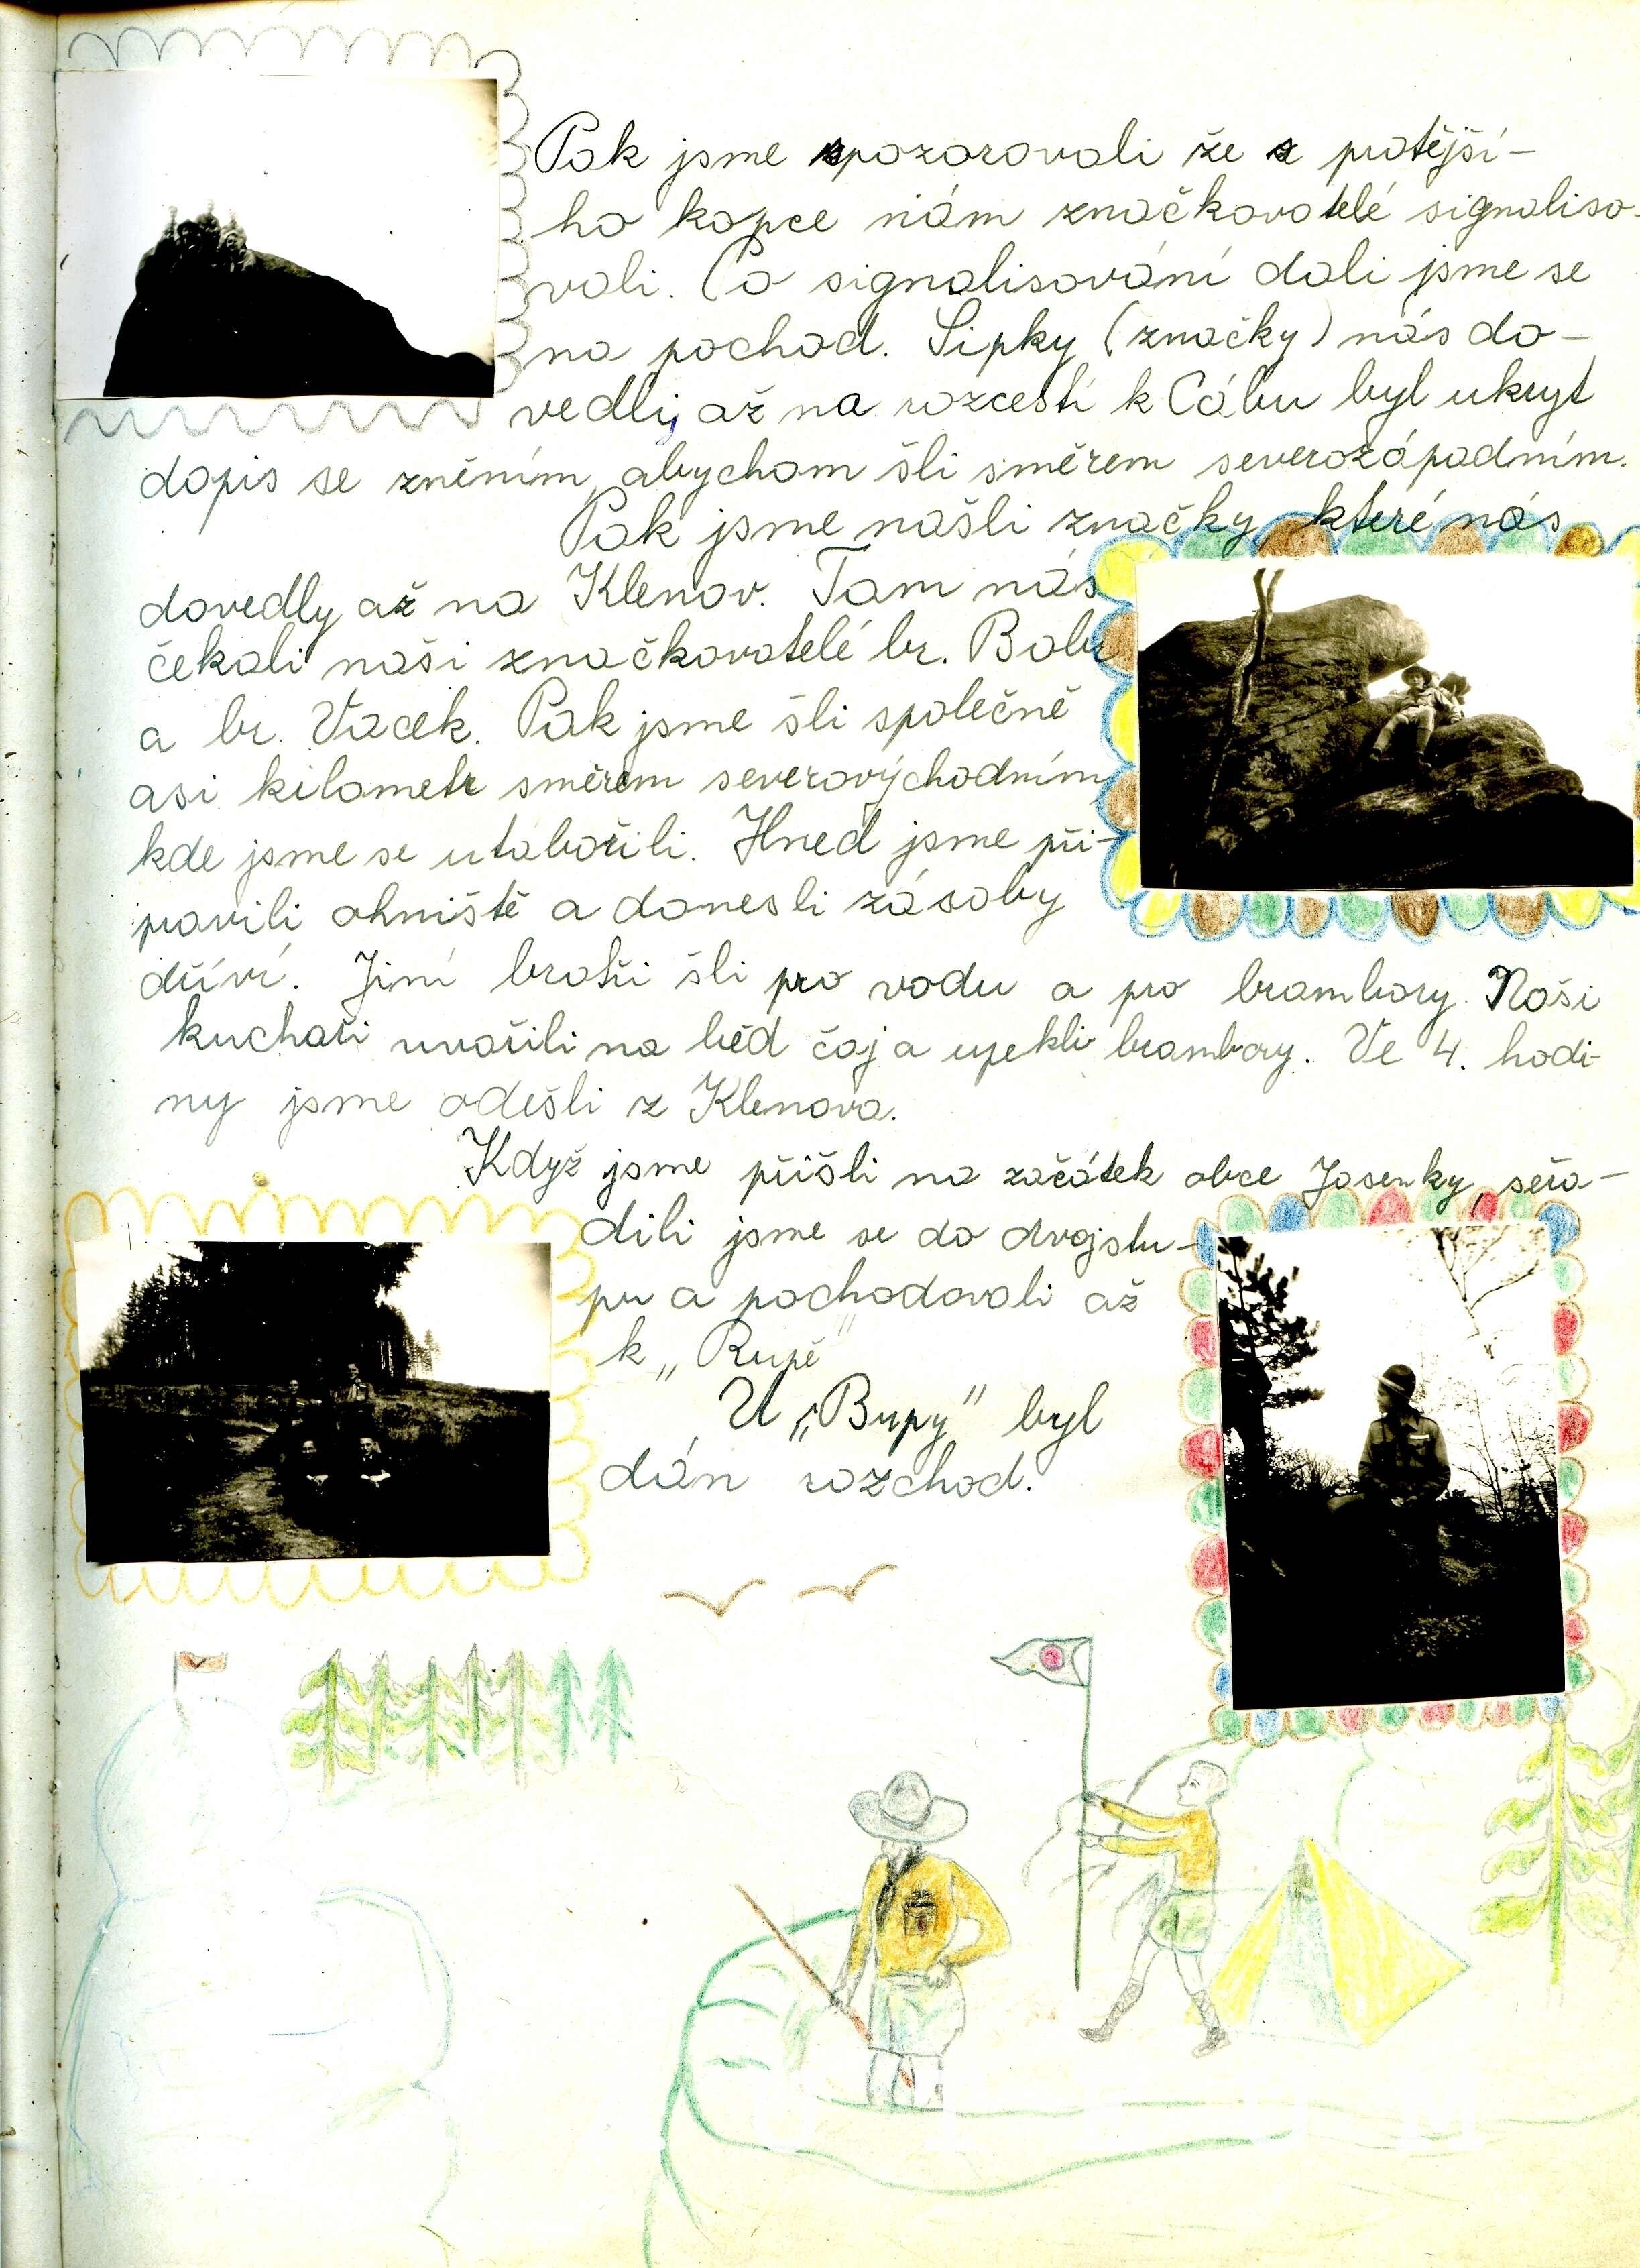 Pak jsme zpozorovali že z protější-
ho kopce nám značkovatelé signaliso-
vali. Po signalisování dali jsme se
na pochod. Šipky (značky) nás do-
vedly až na rozcestí k Cábu byl ukryt
dopis se zněním, abychom šli směrem severozápadním.
Pak jsme našli značky které nás
dovedly až na Klenov. Tam nás
čekali naši značkovatelé br. Bobr
a br. Vacek. Pak jsme šli společně
asi kilometr směrem severovýchodním
kde jsme se utabořili. Hned jsme při-
pravili ohniště a donesli zásoby
dříví. Jiní bratři šli pro vodu a pro brambory. Naši
kuchaři uvařili na běd čaj a upekli brambory. Ve 4. hodi-
ny jsme odešli z Klenova.
Když jsme přišli na začátek obce Jasenky, seřa-
dili jsme se do dvojstu-
pu a pochodovali až
k „Rupě"
U „Bupy" byl
dán rozchod.